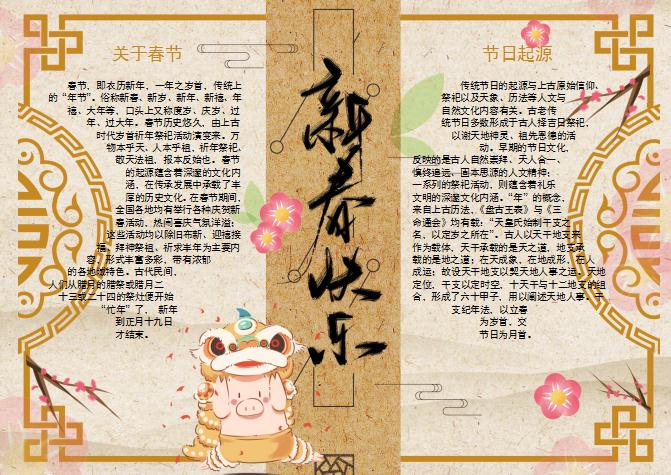 关于春节
春节，即农历新年，一年之岁首，传统上
的“年节”。俗称新春、新岁、新年、新禧、年
禧、大年等，口头上又称度岁、庆岁、过
年、过大年。春节历史悠久，由上古
时代岁首祈年祭祀活动演变来。万
物本乎天、人本乎祖，祈年祭祀、
敬天法祖、报本反始也。春节
的起源蕴含着深邃的文化内
涵，在传承发展中承载了丰
厚的历史文化。在春节期间，
全国各地均有举行各种庆贺新
春活动，热闹喜庆气氛洋溢；
这些活动均以除旧布新、迎禧接
福、拜神祭祖、祈求丰年为主要内
容，形式丰富多彩，带有浓郁
的各地域特色。古代民间，
人们从腊月的腊祭或腊月二
十三或二十四的祭灶便开始
“忙年”了， 新年
到正月十九日
才结束。
新春快乐
节日起源
传统节日的起源与上古原始信仰、
祭祀以及天象、历法等人文与
自然文化内容有关。古老传
统节日多数形成于古人择吉日祭祀，
以谢天地神灵、祖先恩德的活
动。早期的节日文化，
反映的是古人自然崇拜、天人合一、
慎终追远、固本思源的人文精神；
一系列的祭祀活动，则蕴含着礼乐
文明的深邃文化内涵。“年”的概念，
来自上古历法，《盘古王表》与《三
命通会》均有载：“天皇氏始制干支之
名，以定岁之所在”。古人以天干地支来
作为载体，天干承载的是天之道，地支承
载的是地之道；在天成象，在地成形，在人
成运；故设天干地支以契天地人事之运。天地
定位，干支以定时空，十天干与十二地支的组
合，形成了六十甲子，用以阐述天地人事。干
支纪年法，以立春
为岁首，交
节日为月首。